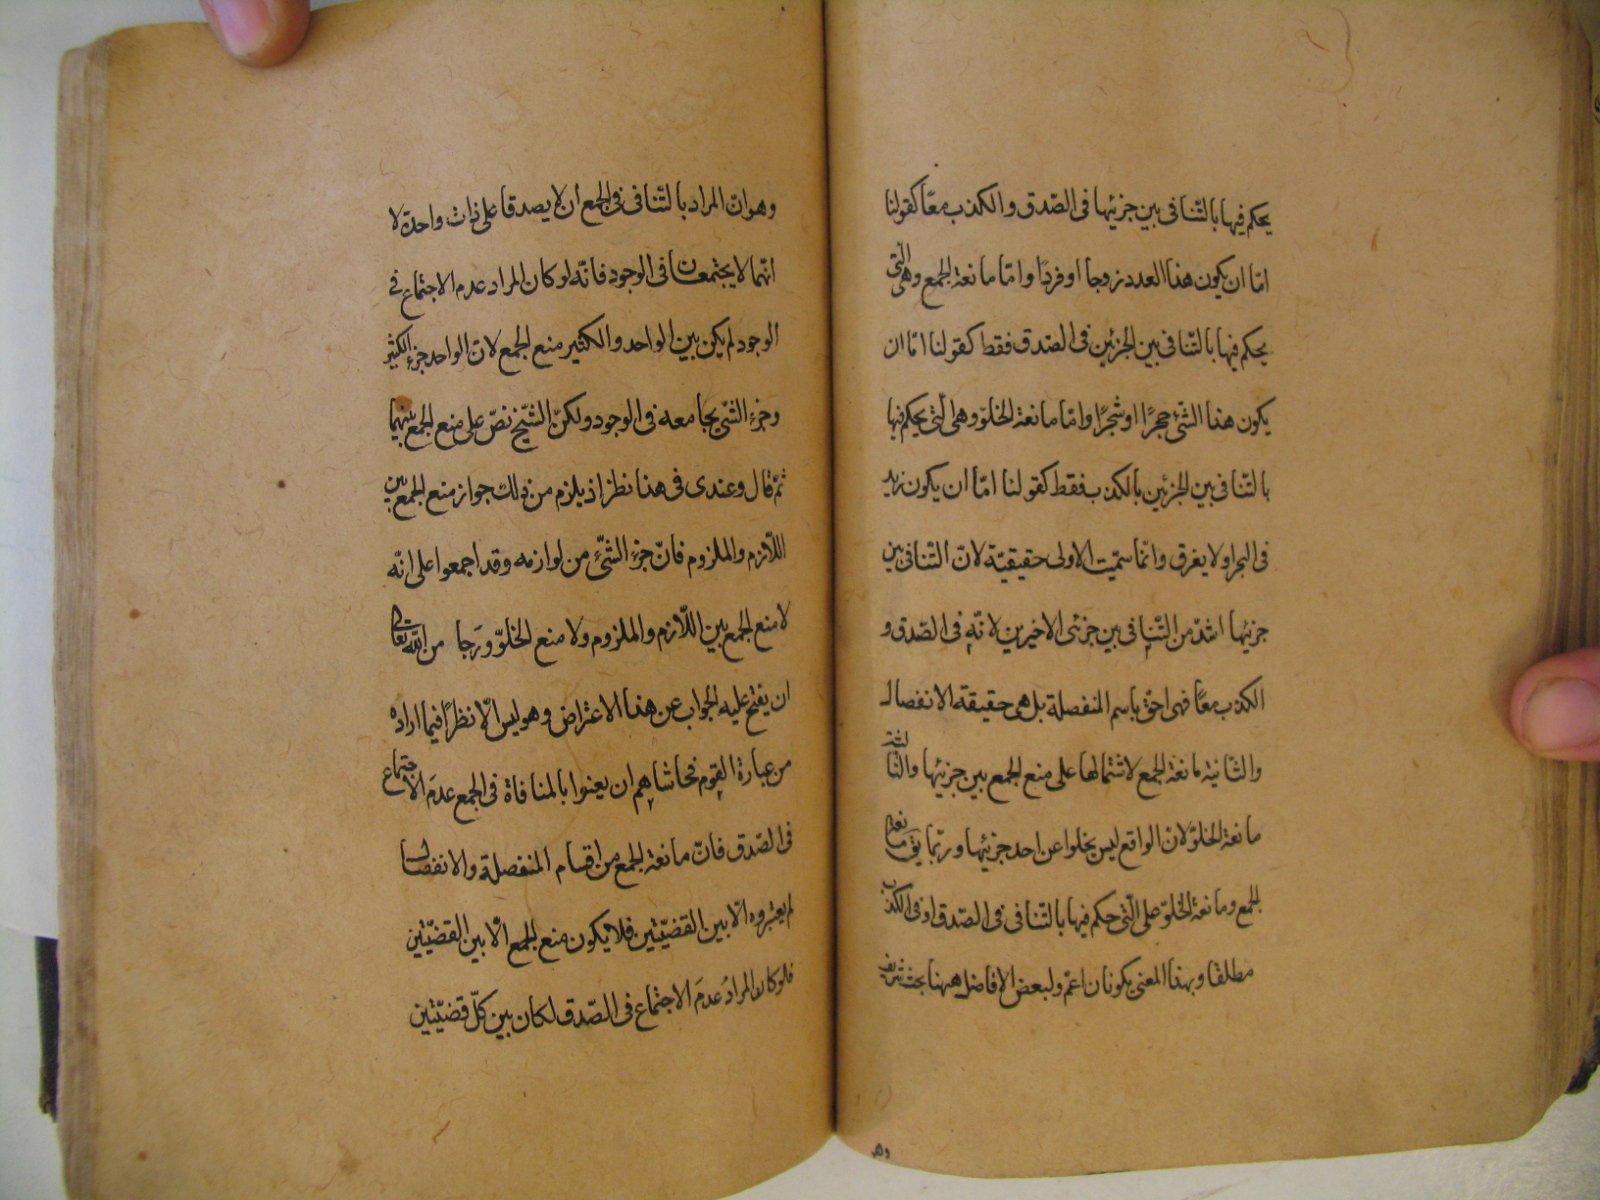 يحكم فيها بالتّنافى بين جزئيها فى الصّدق والكذب معًا كقولنا
امّا ان يكون هذا العدد زوجا او فردًا وامّا مانعة الجمع وهى الّتى
يحكم فيها بالتّنافى بين الجزئين فى الصّدق فقط كقولنا امّا ان
يكون هذا الشّئ حجرًا او شجرًا وامّا مانعة الخلوّ وهى الّتى يحكم فيها
بالتّنافى بين الجزئين بالكذب فقط كقولنا امّا ان يكون زيد
فى البحر او لا يغرق وانّما سمّيت الاولى حقيقيّة لانّ التّنافى بين
جزئيها اشدّ من التّنافى بين جزئى الاخيرين لانّه فى الصّدق و
الكذب معًا فهى احقّ باسم المنفصلة بل هى حقيقة الانفصال
والثّانية مانعة الجمع لاشتمالها على منع الجمع بين جزئيها والثّالثة
مانعة الخلوّ لانّ الواقع ليس يخلوا عن احد جزئيها وربّما يق مانعة
الجمع ومانعة الخلوّ على الّتى حكم فيها بالتّنافى فى الصّدق او فى الكذب
مطلقا وبهذا المعنى يكونان اعمّ ولبعض الافاضل ههنا بحث شريف
وهو
وهو انّ المراد بالتّنافى فى الجمع أن لا يصدقا على ذات واحدة لا
انّهما لا يجتمعان فى الوجود فانّه لو كان المراد عدم الاجتماع فى
الوجود لم يكن بين الواحد والكثير منع الجمع لانّ الواحد جزء الكثير
وجزء الشّئ يجامعه فى الوجود ولكنّ الشّيخ نصّ على منع الجمع بينهما
ثمّ قال وعندى فى هذا نظر اذ يلزم من ذلك جواز منع الجمع بين
اللّازم والملزوم فانّ جزء الشّئ من لوازمه وقد اجمعوا على انّه
لا منع الجمع بين اللّازم والملزوم ولا منع الخلوّ ورجا من اللّه تعالى
ان يفتح عليه الجواب عن هذا الاعتراض وهو ليس الّا نظرًا فيما اراده
من عبارة القوم فحاشاهم ان يعنوا بالمنافاة فى الجمع عدم الاجتماع
فى الصّدق فانّ مانعة الجمع من اقسام المنفصلة والانفصال
لم يعتبروه الّا بين القضيّتين فلا يكون منع الجمع الّا بين القضيّتين
فلو كان المراد عدم الاجتماع فى الصّدق لكان بين كلّ قضيّتين